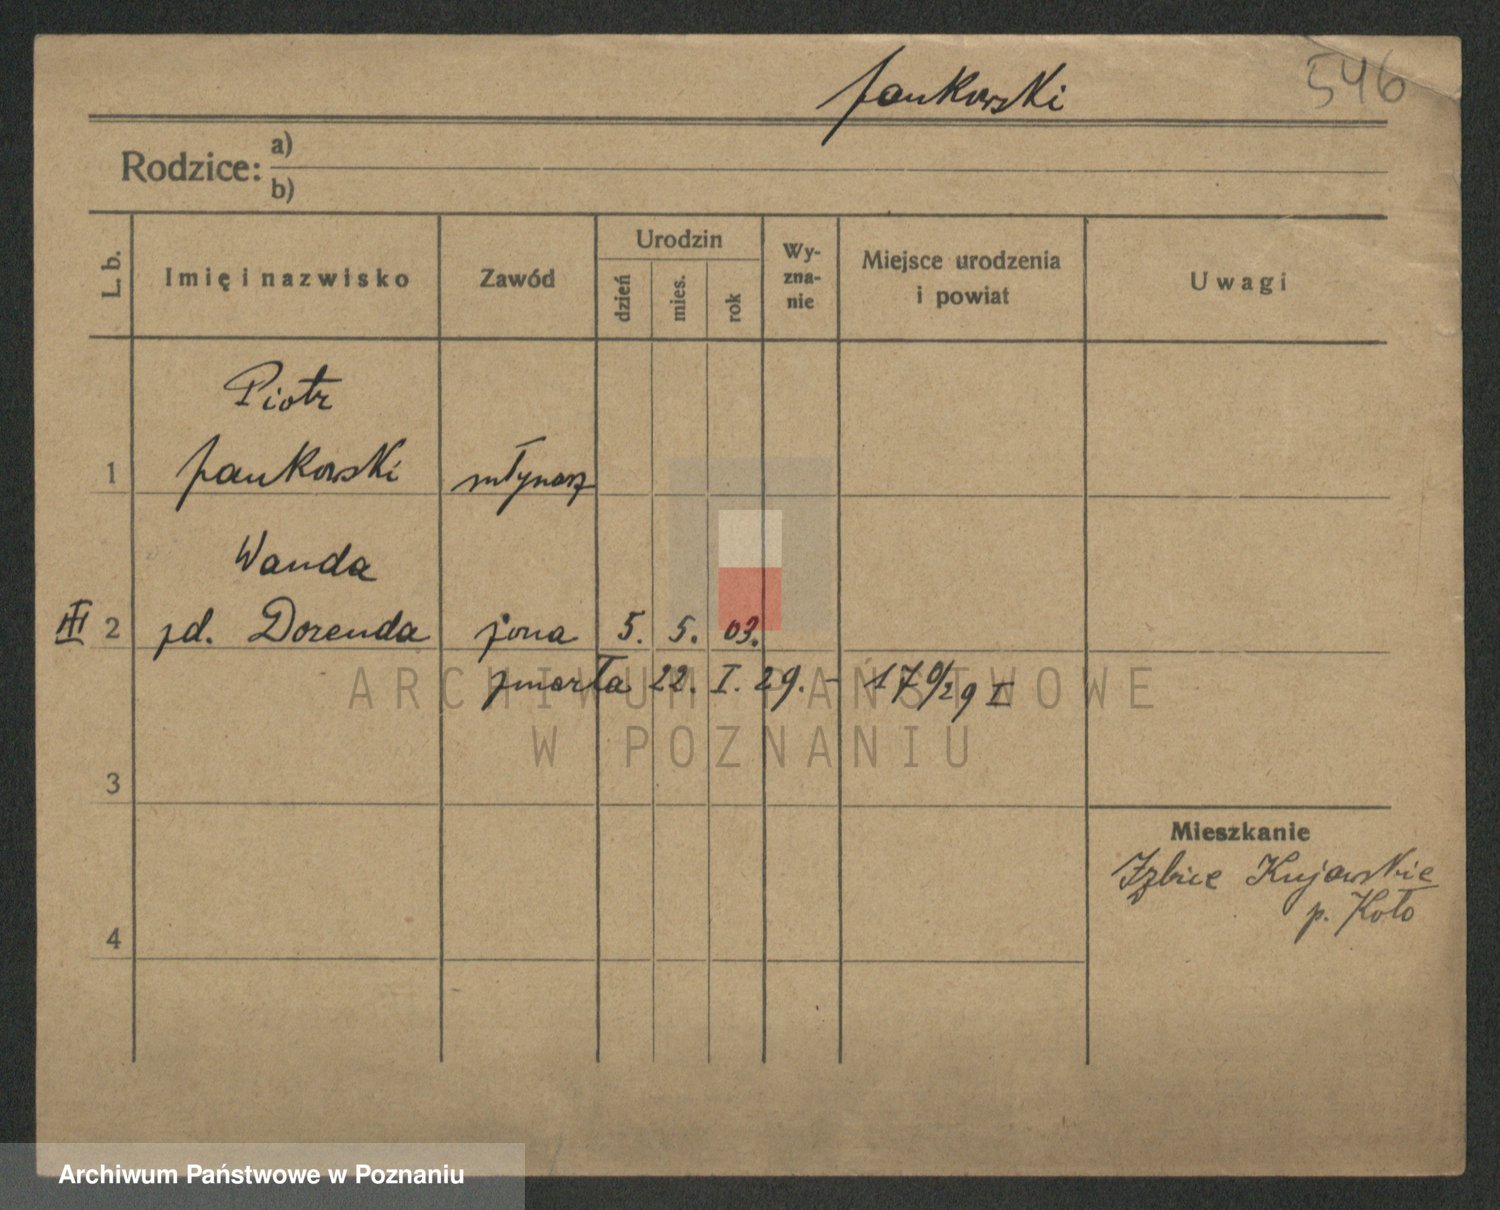 Jankowski
546
Rodzice: a)
b)
L. b.
Imię i nazwisko
Zawód
Urodzin
dzień
mies.
rok
Wy-
zna-
nie
Miejsce urodzenia
i powiat
Uwagi
Piotr
1 Jankowski młynarz
Wanda
III 2 zd. Dorenda żona 5. 5. 03.
zmarła 22. I. 29. - 170/29 I
ARCHIWUM PAŃSTWOWE
W POZNANIU
3
Mieszkanie
Izbice Kujawskie
p. Koło
4
Archiwum Państwowe w Poznaniu